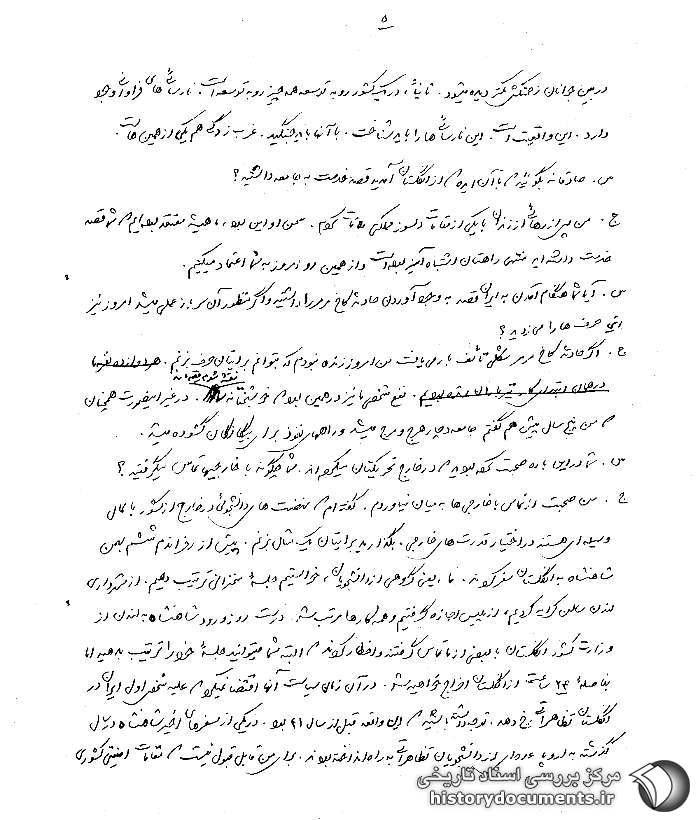 ۵
در بین جوانان زحمتکش کمتر دیده میشود. ثانیاً، در یک کشور رو به توسعه همه چیز رو به توسعه است. نارسائی های فراوانی وجود
دارد. این واقعیت است. این نارسائی ها را باید شناخت. با آنها باید جنگید. غرب زدگی هم یکی از همین هاست.
س. صادقانه بگوئید با آن ایده از انگلستان آمدید قصد خدمت به جامعه داشتید؟
ج. من پس از رهائی از زندان با یکی از مقامات دلسوز مملکتی ملاقات کردم. سخن او این بود، همیشه معتقد بوده ایم که شما قصد
خدمت داشته اید منتهی راهتان اشتباه آمیز بوده است و از همین رو امروز به شما اعتماد میکنیم.
س. آیا شما هنگام آمدن به ایران قصد به وجود آوردن حادثه کاخ مرمر را داشتید و اگر منظور آن سرباز عملی میشد امروز نیز
این حرف ها را می زدید؟
ج. اگر حادثه کاخ مرمر شکل تأسف بار می یافت من امروز زنده نبودم که بتوانم برایتان حرف بزنم.
نفع شخصی ما نیز در همین بود که خوشبختانه نقشه شوم
در غیر اینصورت همچنان
که من پنج سال پیش هم گفتم جامعه دچار هرج و مرج میشد و راههای نفوذ برای بیگانگان گشوده میشد.
س. شما در این باره صحبت کرده بودید که در خارج تحریکتان میکردند. شما چگونه با خارجیها تماس میگرفتید؟
ج. من صحبت از تماس با خارجی ها به میان نیاوردم. گفته ام که نهضت های دانشجوئی در خارج از کشور با کمال
وسیله ای هستند در اختیار قدرت های خارجی. بگذارید برایتان یک مثال بزنم. پیش از رفراندم ششم بهمن
شاهنشاه به انگلستان سفر کردند. ما، یعنی گروهی از دانشجویان، خواستیم جلسه سخنرانی ترتیب دهیم. از شهرداری
لندن سالن کرایه کردیم، از پلیس اجازه گرفتیم و همه کارها مرتب شد. درست روز ورود شاهنشاه به لندن از
وزارت کشور انگلستان با بعضی از ما تماس گرفتند و اخطار کردند که البته شما میتوانید جلسه خود را ترتیب بدهید اما
بفاصله ۲۴ ساعت از انگلستان اخراج خواهید شد. در آن زمان سیاست آنها اقتضا نمیکرد که علیه شخص اول ایران در
انگلستان تظاهراتی رخ دهد. توجه داشته باشید که این واقعه قبل از سال ۴۱ بود. در یکی از سفرهای اخیر شاهنشاه در سال
گذشته به اروپا عده ای از دانشجویان تظاهراتی به راه انداخته بودند. برای من قابل قبول نیست که مقامات امنیتی کشوری
مرکز بررسی اسناد تاریخی
historydocuments.ir